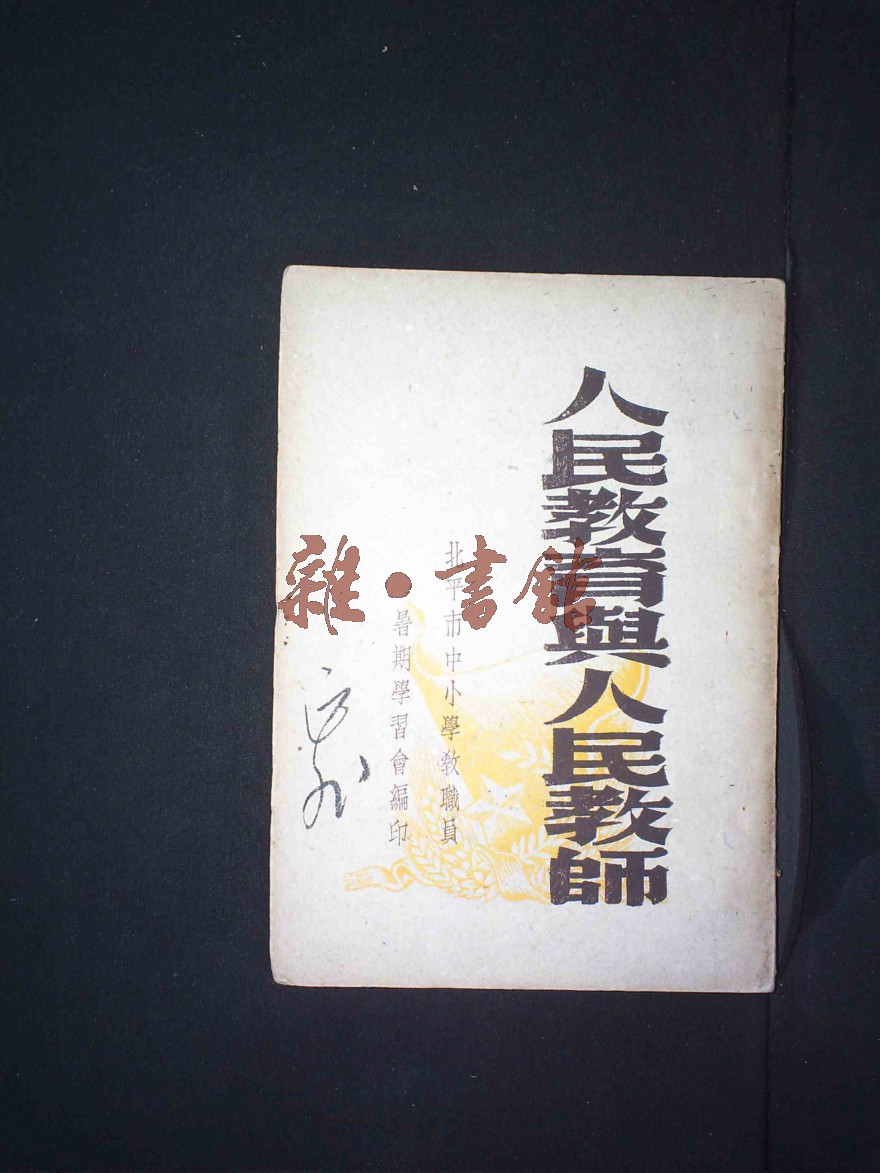 人民教育與人民教師
北平市中小學教職員
暑期學習會編印
雜·書館